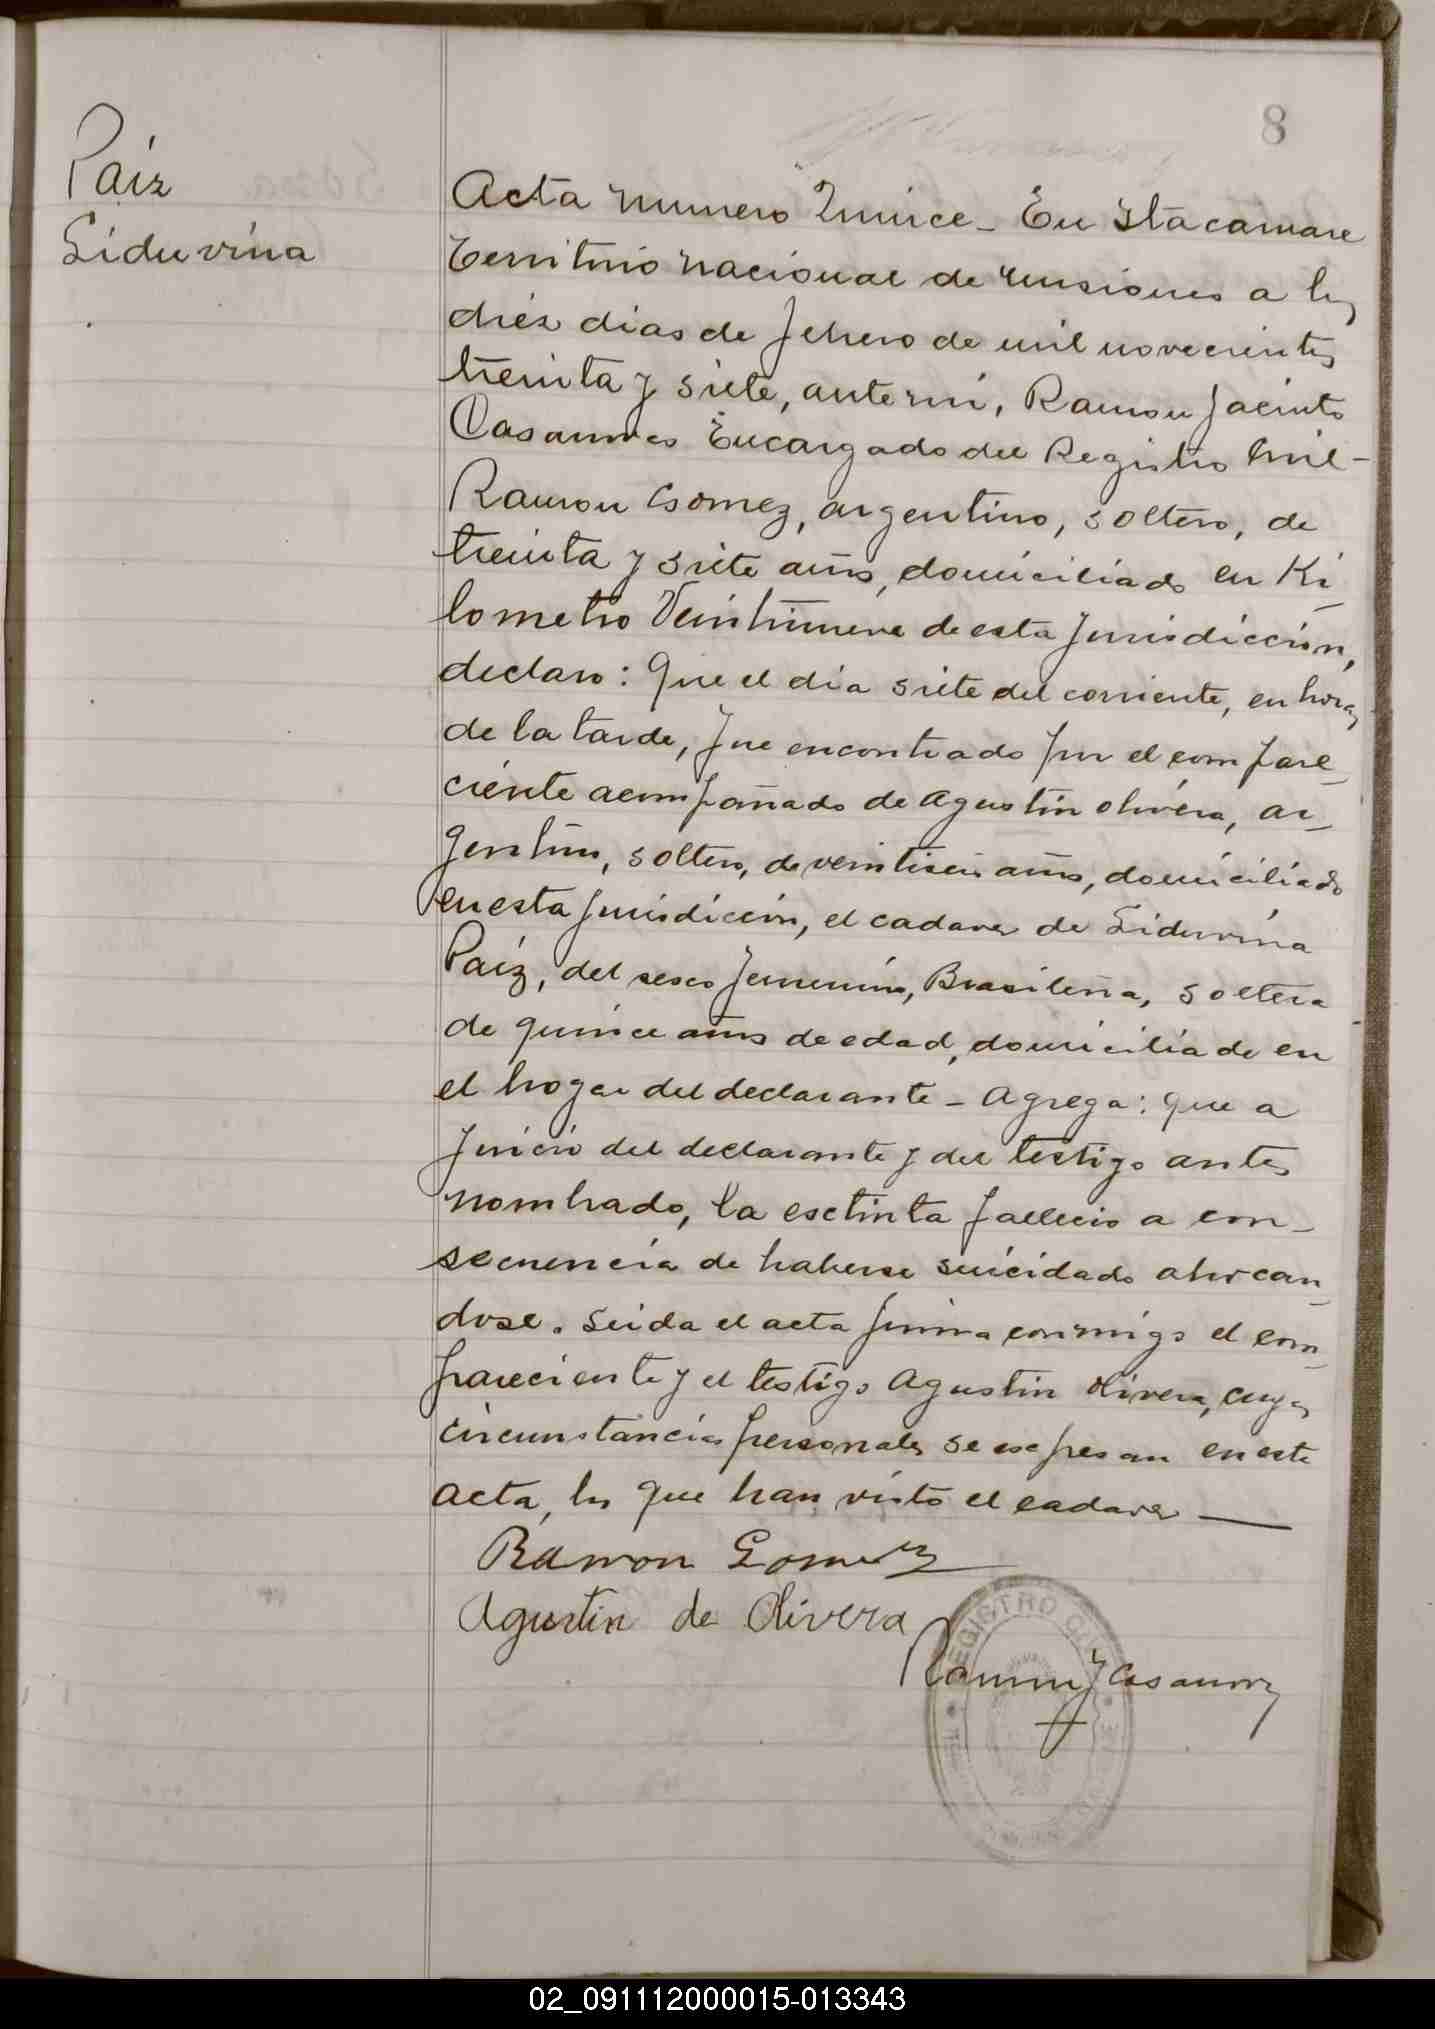 8
Paiz
Liduvina
Acta numero Quince_ En Itacaruare
territorio nacional de misiones a los
diéz dias de febrero de mil novecientos
treinta y siete, ante mi, Ramon Jacinto
Encargado del Registro Civil_
Ramon Gomez, argentino, soltero, de
treinta y siete años, domiciliado en Ki_
lometro Veintinueve de esta jurisdicción,
declaro: Que el dia siete del corriente, en horas
de la tarde, fue encontrado por el compare_
ciente acompañado de Agustin Olivera, ar_
gentino, soltero, de veintiseis años, domiciliado
en esta jurisdicción, el cadaver de Liduvina
Paiz, del sexo femenino, Brasileña, soltera
de quince años de edad, domiciliada en
el hogar del declarante_ Agrega: que a
juicio del declarante y del testigo antes
nombrado, la extinta fallecio a con_
secuencia de haberse suicidado ahorcan_
dose. Leida el acta firma conmigo el com_
pareciente y el testigo Agustin Olivera, cuyas
circunstancias personales se expresan en este
acta, los que han visto el cadaver
Ramon Gomez
Agustin de Olivera
Ramon J
REGISTRO CIVIL
02_091112000015-013343